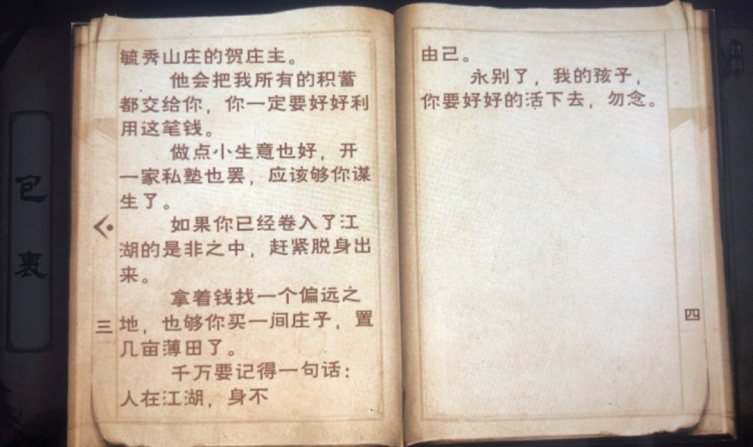 毓秀山庄的贺庄主。
他会把我所有的积蓄
都交给你，你一定要好好利
用这笔钱。
做点小生意也好，开
一家私塾也罢，应该够你谋
生了。
如果你已经卷入了江
湖的是非之中，赶紧脱身出
来。
拿着钱找一个偏远之
地，也够你买一间庄子，置
几亩薄田了。
千万要记得一句话：
人在江湖，身不
三
由己。
永别了，我的孩子，
你要好好的活下去，勿念。
四
包裹
材料